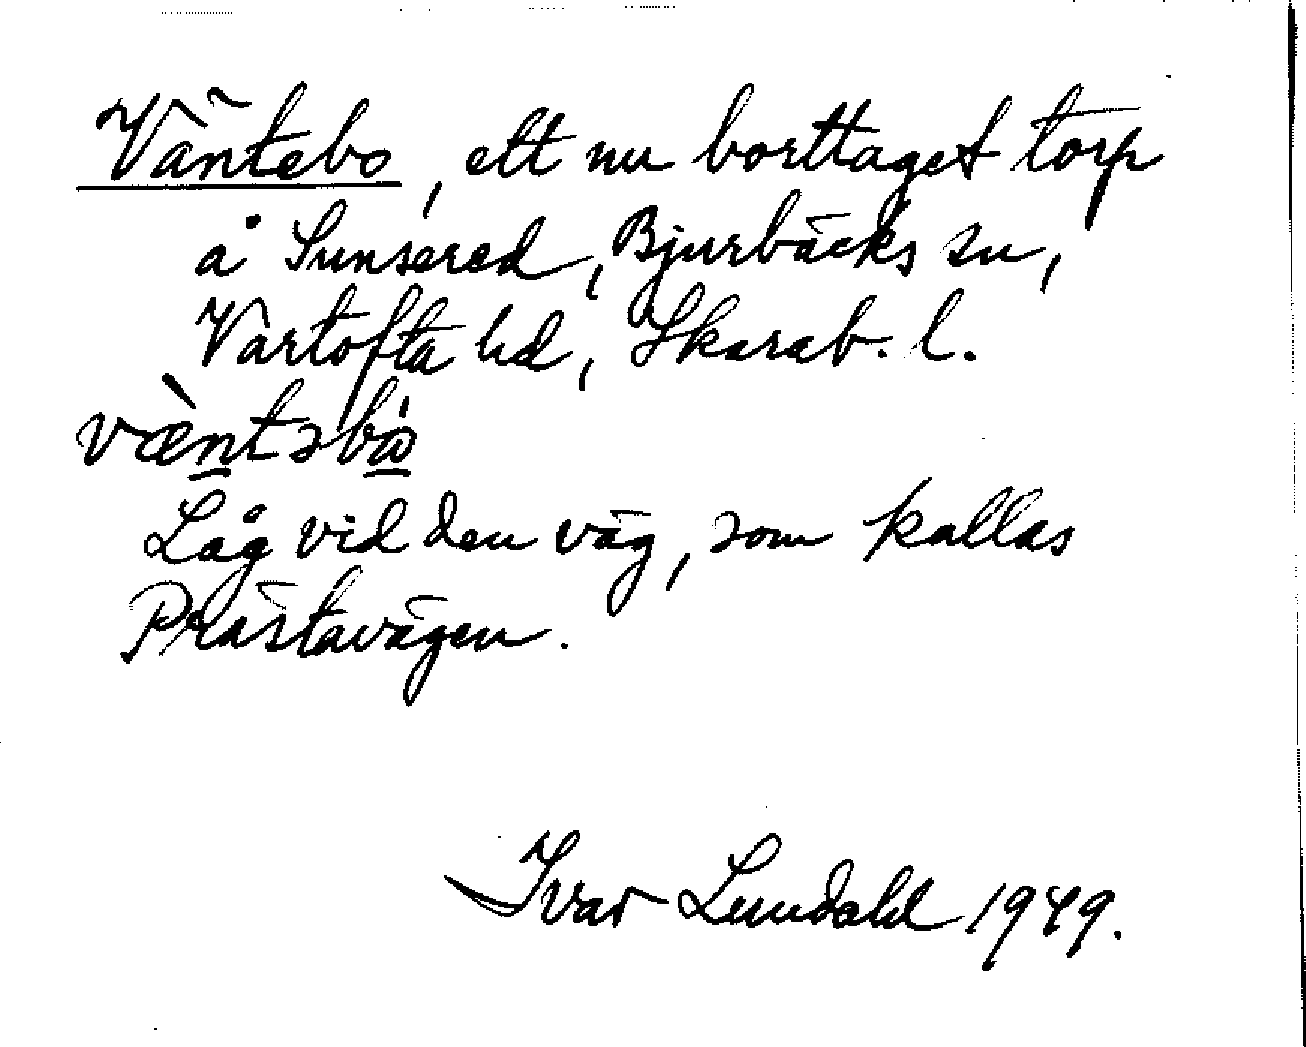 Väntebo, ett nu borttaget torp
å Sunsered, Bjurbäcks sn,
Vartofta hd, Skarab. l.
væ̀ntəbȧ̀
Låg vid den väg, som kallas
Prästavägen.
Ivar Lundahl 1949.